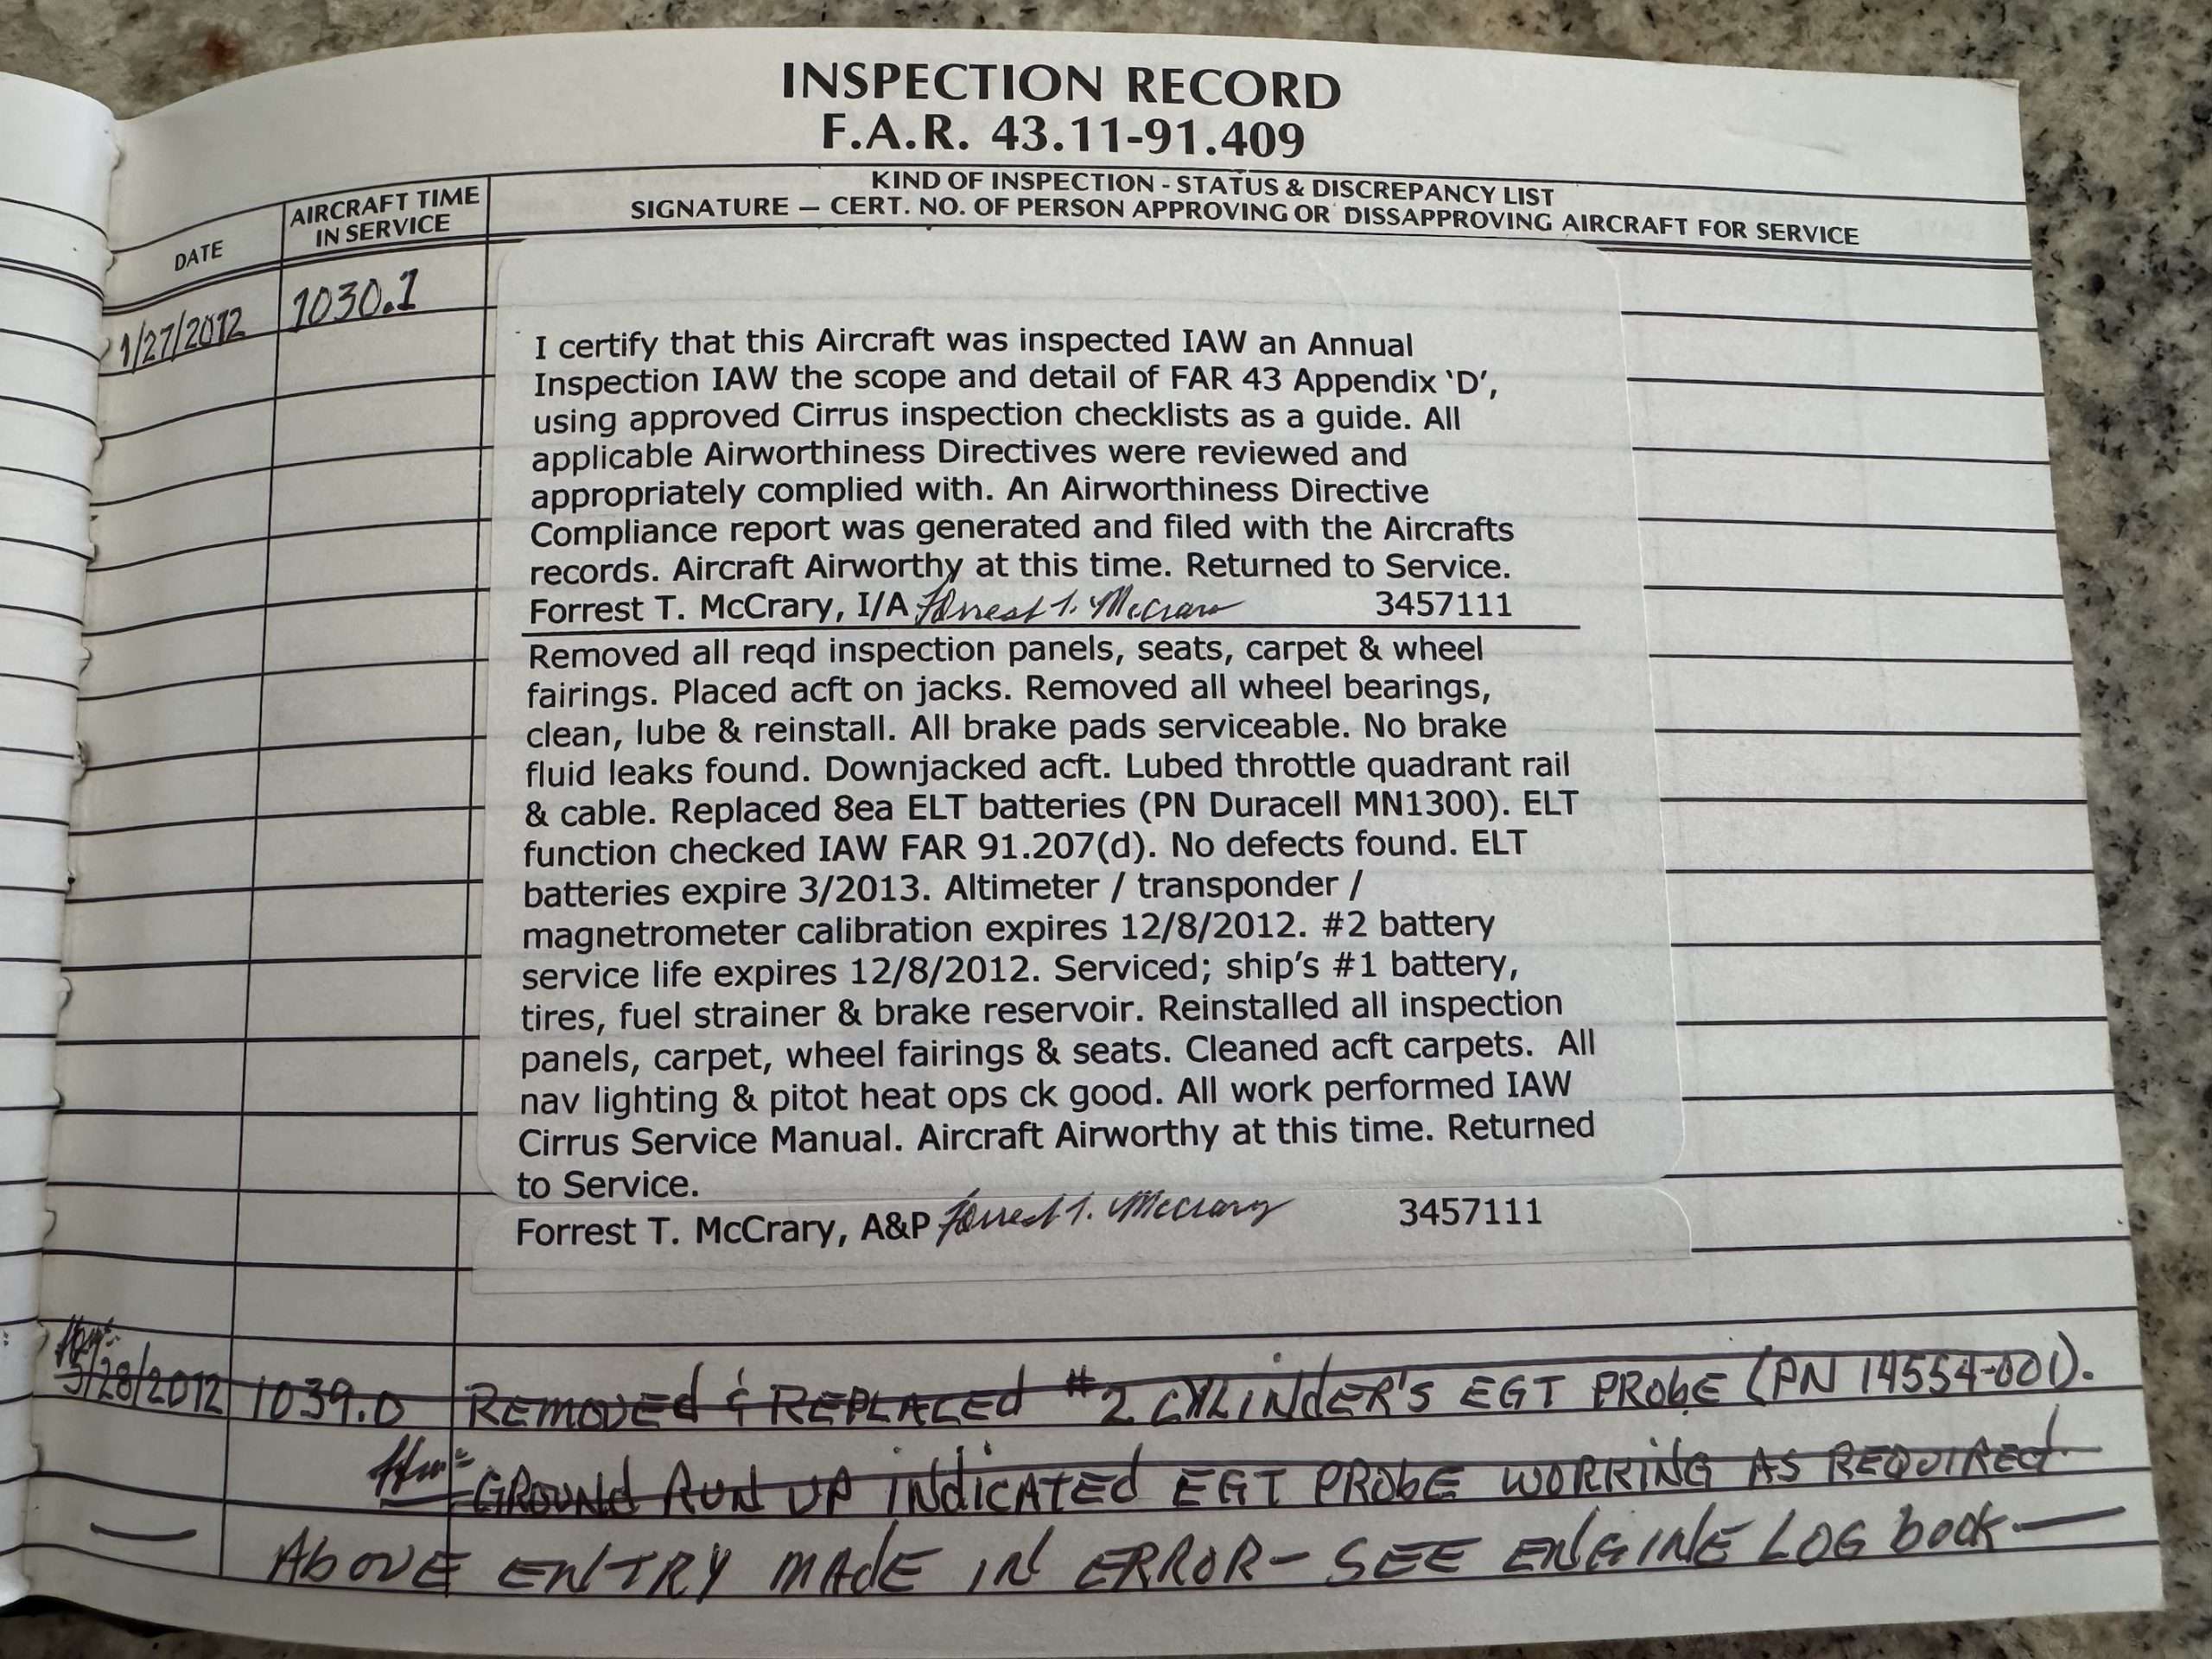 INSPECTION RECORD
F.A.R. 43.11-91.409
DATE
AIRCRAFT TIME
IN SERVICE
KIND OF INSPECTION - STATUS & DISCREPANCY LIST
SIGNATURE — CERT. NO. OF PERSON APPROVING OR DISSAPPROVING AIRCRAFT FOR SERVICE
1/27/2012 1030.1
I certify that this Aircraft was inspected IAW an Annual
Inspection IAW the scope and detail of FAR 43 Appendix ‘D’,
using approved Cirrus inspection checklists as a guide. All
applicable Airworthiness Directives were reviewed and
appropriately complied with. An Airworthiness Directive
Compliance report was generated and filed with the Aircrafts
records. Aircraft Airworthy at this time. Returned to Service.
Forrest T. McCrary, I/A Forrest T. McCrary 3457111
Removed all reqd inspection panels, seats, carpet & wheel
fairings. Placed acft on jacks. Removed all wheel bearings,
clean, lube & reinstall. All brake pads serviceable. No brake
fluid leaks found. Downjacked acft. Lubed throttle quadrant rail
& cable. Replaced 8ea ELT batteries (PN Duracell MN1300). ELT
function checked IAW FAR 91.207(d). No defects found. ELT
batteries expire 3/2013. Altimeter / transponder /
magnetrometer calibration expires 12/8/2012. #2 battery
service life expires 12/8/2012. Serviced; ship’s #1 battery,
tires, fuel strainer & brake reservoir. Reinstalled all inspection
panels, carpet, wheel fairings & seats. Cleaned acft carpets.  All
nav lighting & pitot heat ops ck good. All work performed IAW
Cirrus Service Manual. Aircraft Airworthy at this time. Returned
to Service.
Forrest T. McCrary, A&P Forrest T. McCrary 3457111
3/28/2012 1039.0 REMOVEd & REPLACEd #2 CYLiNdER'S EGT PRObE (PN 14554-001).
GROUNd RUN UP iNdiCATEd EGT PRObE WORKiNG AS REQUIREd
— AbOVE ENTRY MAdE IN ERROR - SEE ENGINE LOG book. —